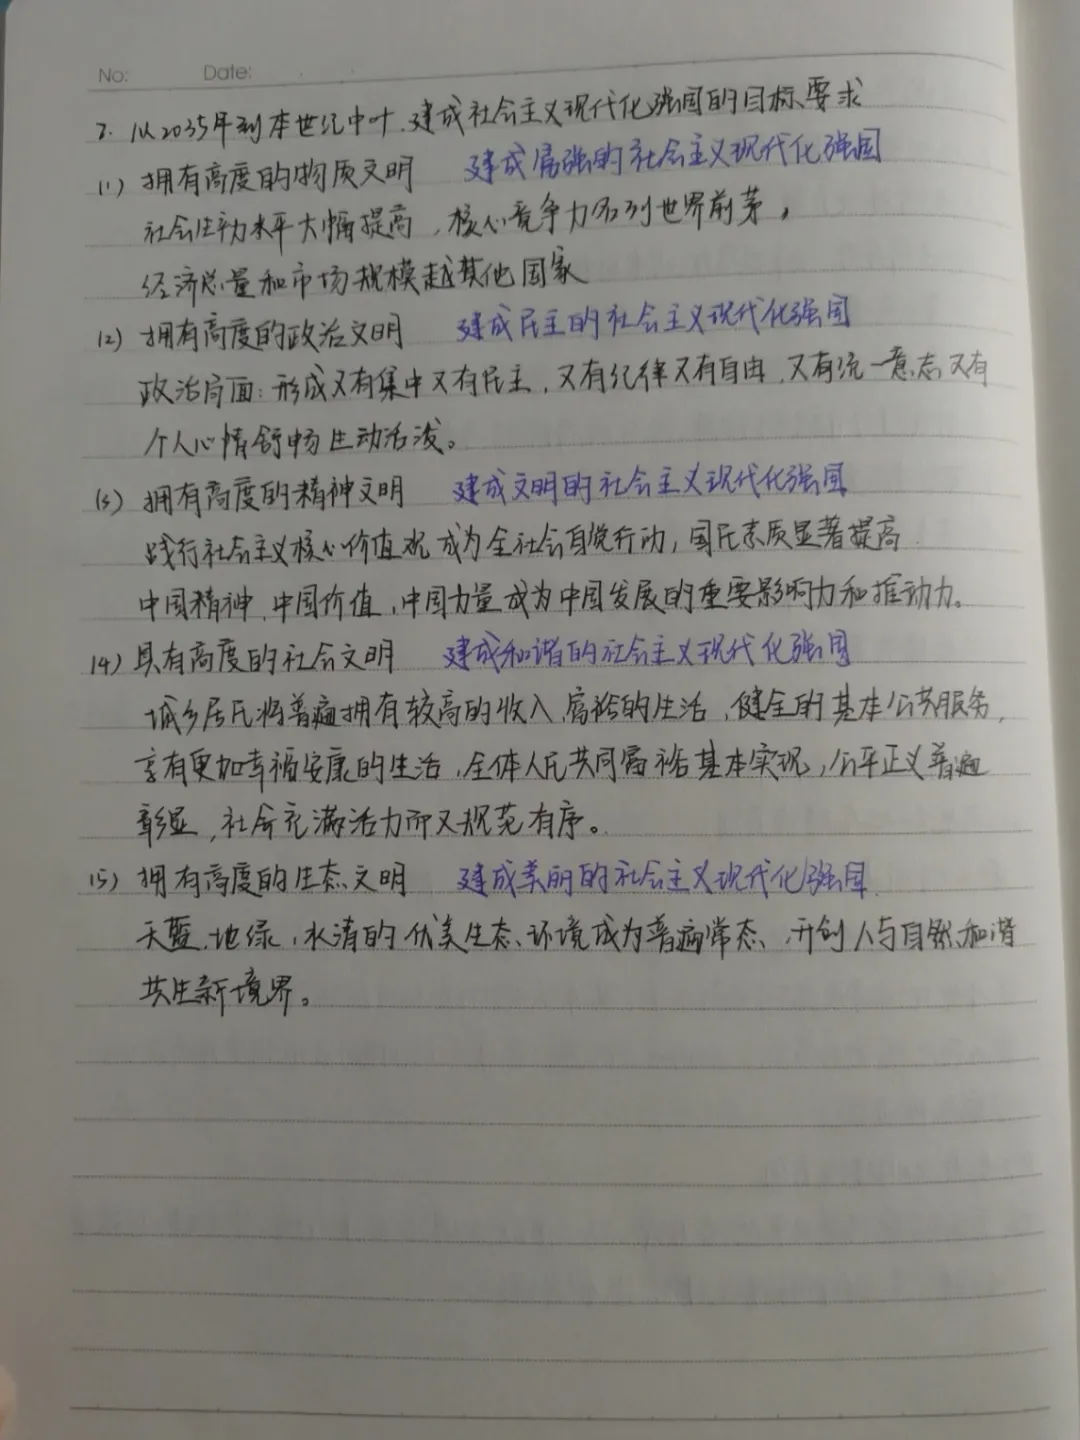 No: Date:
7. 从2035年到本世纪中叶,建成社会主义现代化强国的目标要求
(1) 拥有高度的物质文明 建成富强的社会主义现代化强国
社会生产力水平大幅提高,核心竞争力名列世界前茅,
经济总量和市场规模越其他国家
(2) 拥有高度的政治文明 建成民主的社会主义现代化强国
政治局面:形成又有集中又有民主,又有纪律又有自由,又有统一意志又有
个人心情舒畅生动活泼。
(3) 拥有高度的精神文明 建成文明的社会主义现代化强国
践行社会主义核心价值观成为全社会自觉行动,国民素质显著提高
中国精神、中国价值、中国力量成为中国发展的重要影响力和推动力。
(4) 具有高度的社会文明 建成和谐的社会主义现代化强国
城乡居民将普遍拥有较高的收入,富裕的生活,健全的基本公共服务,
享有更加幸福安康的生活,全体人民共同富裕基本实现,公平正义普遍
彰显,社会充满活力而又规范有序。
(5) 拥有高度的生态文明 建成美丽的社会主义现代化强国
天蓝、地绿、水清的优美生态、环境成为普遍常态、开创人与自然和谐
共生新境界。